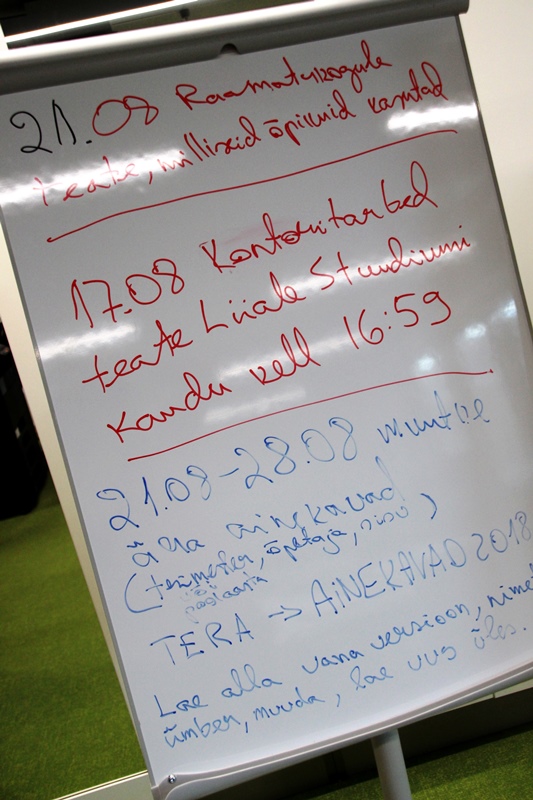 21.08 Raamatukogule
teate, milliseid õpikuid kasutad
17.08 Kontoritarbed
teate Liiale Stuudiumi
kaudu kell 16:59
21.08-28.08 muutke
ära ainekavad
(trimester, õpetaja, sisu)
TERA → AINEKAVAD 2018
Lae alla vana versioon, nimeta
ümber, muuda, lae uus üles.